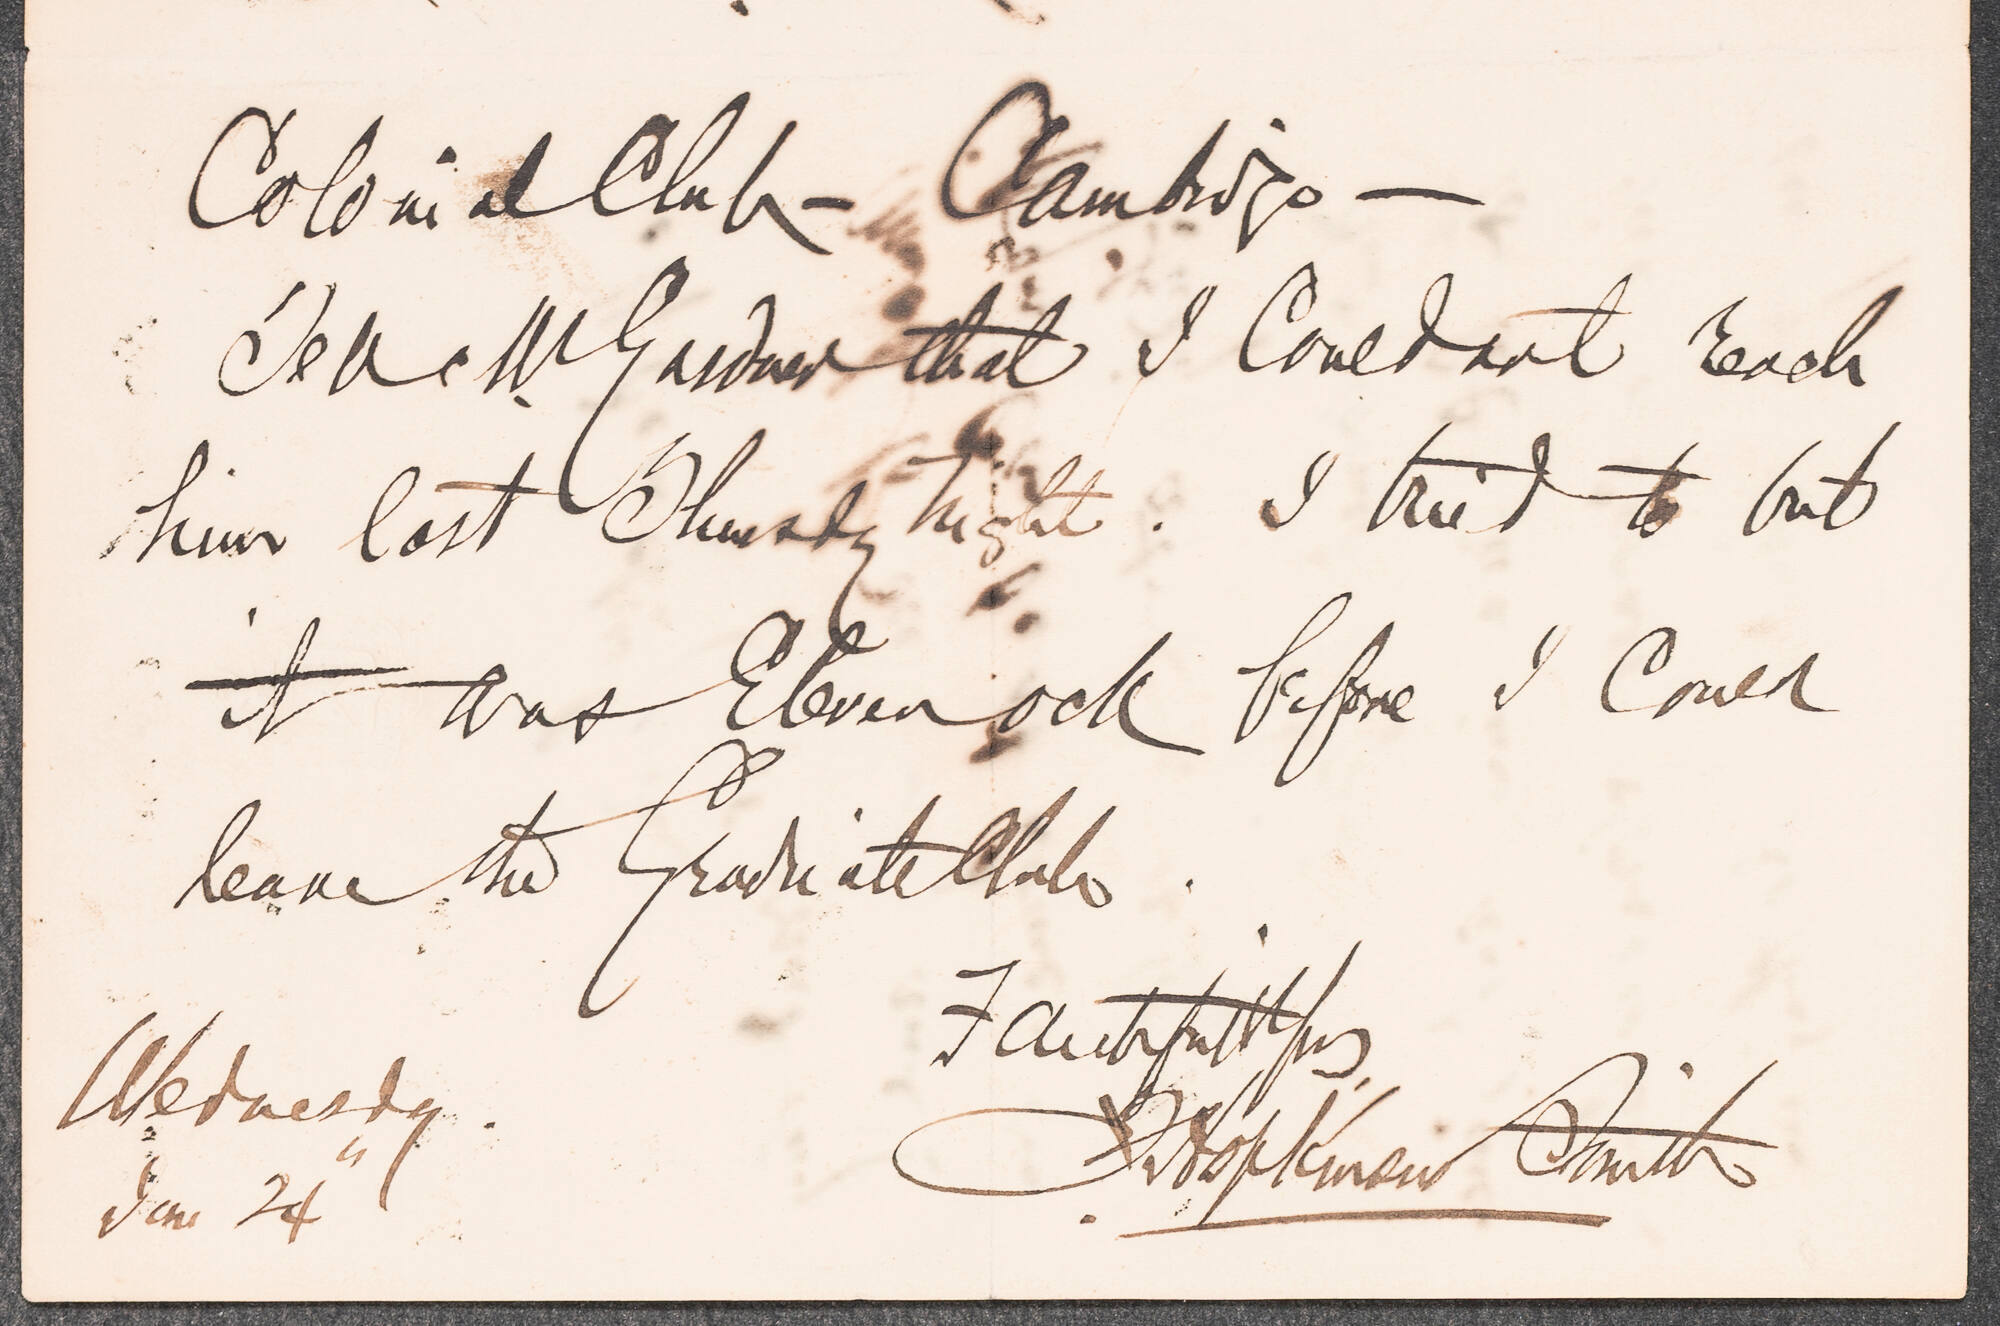 Colonial Club - Cambridge -
Tell Mr Gardner that I Could not reach
him last Thursdy night. I tried to but
it was Eleven ock before I Could
leave the Graduate Club.
Faithfully yrs
F Hopkinson Smith
Wednesdy.
Jan 24"